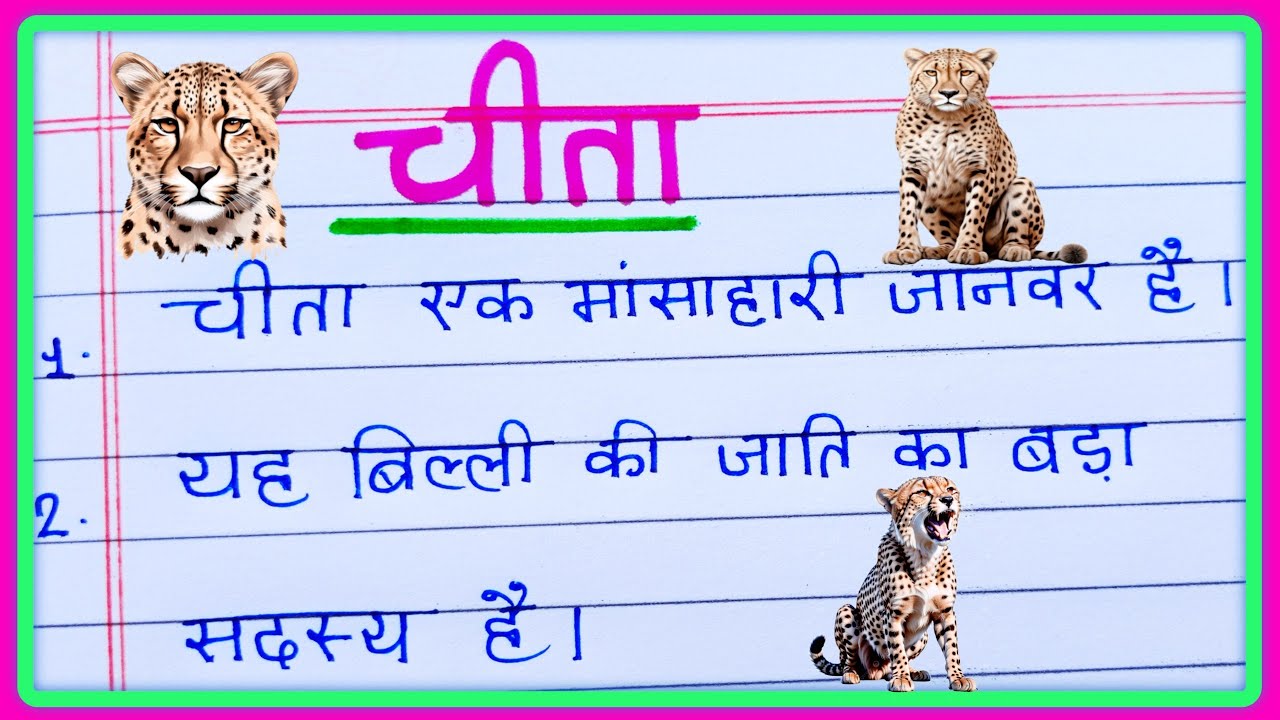 चीता
1. चीता एक मांसाहारी जानवर है।
2. यह बिल्ली की जाति का बड़ा
सदस्य है।